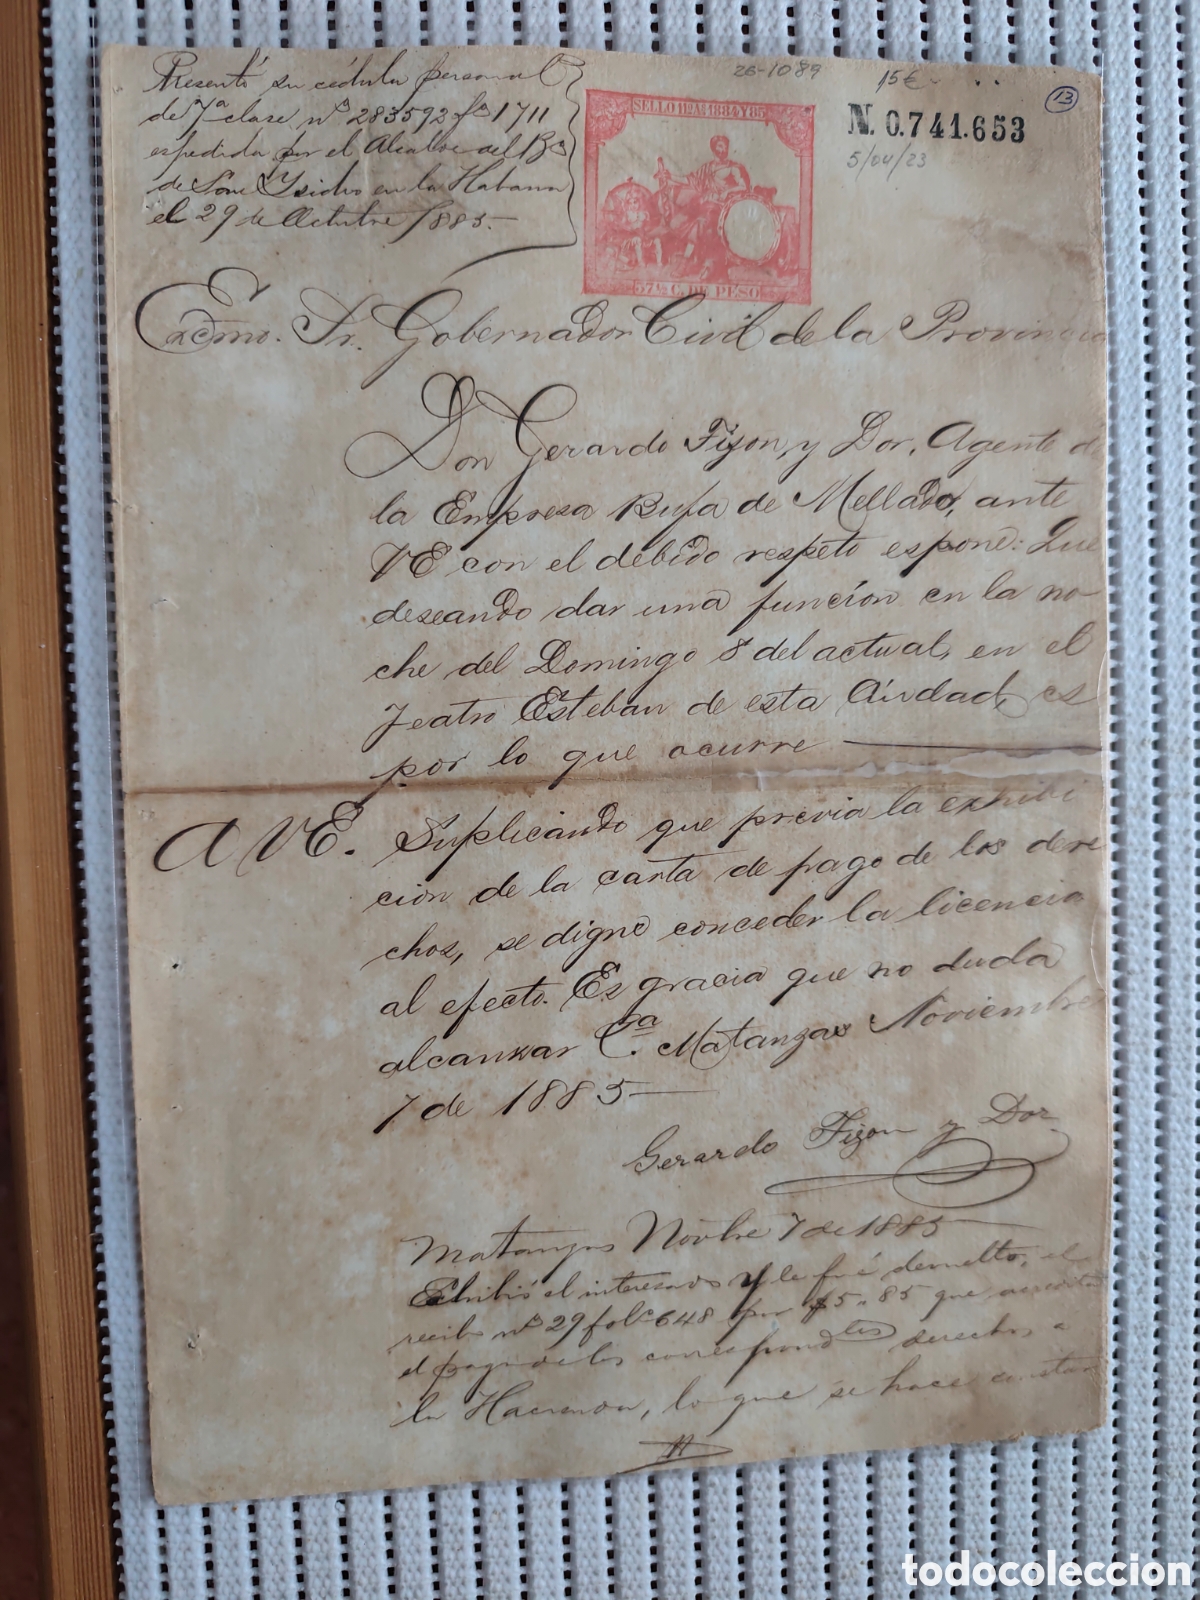 26-1089
15€
13
Presentó su cédula personal
de 7ª clase nº 283592 fº 1711
espedida por el Alcalde del Bº
de San Ysidro en la Habana
el 29 de Octubre 1885.
SELLO 11º AÑS 1884 Y 85
37 ½ C. DE PESO
N. 0.741.653
5/04/23
Excmo. Sr. Gobernador Civil de la Provincia
Don Gerardo Fizon, y Dor, Agente de
la Empresa Bufa de Mellado, ante
VE con el debido respeto espone: Que
deseando dar una función en la no-
che del Domingo 8 del actual, en el
Teatro Esteban de esta Ciudad, es
por lo que ocurre
A VE. Suplicando que previa la exhibi
cion de la carta de pago de los dere
chos, se digne conceder la licencia
al efecto. Es gracia que no duda
alcanzar Cª. Matanzas Noviembre
7 de 1885
Gerardo Fizon y Dor
Matanzas Novbre 7 de 1885
Exhibió el interesado y le fué devuelto, el
recibo nº 29 folº 648 por $5.85 que acredita
el pago de los correspondtes derechos a
la Hacienda, lo que se hace constar
todocoleccion